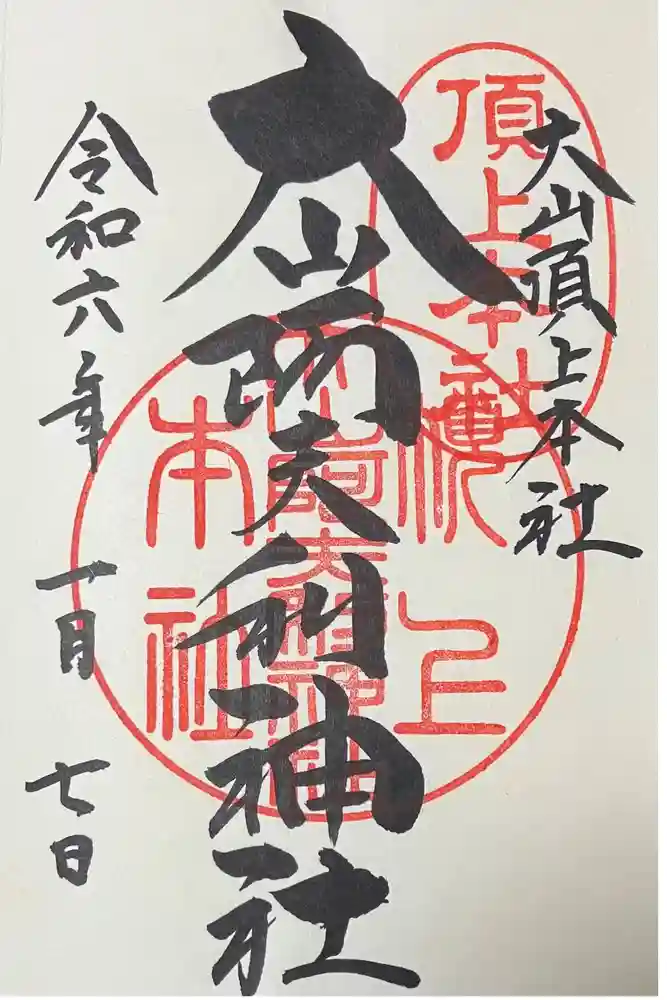 大山頂上本社
頂上本社
大山阿夫利神社
頂上
大山阿夫利神社
本社
令和六年
一月
七日